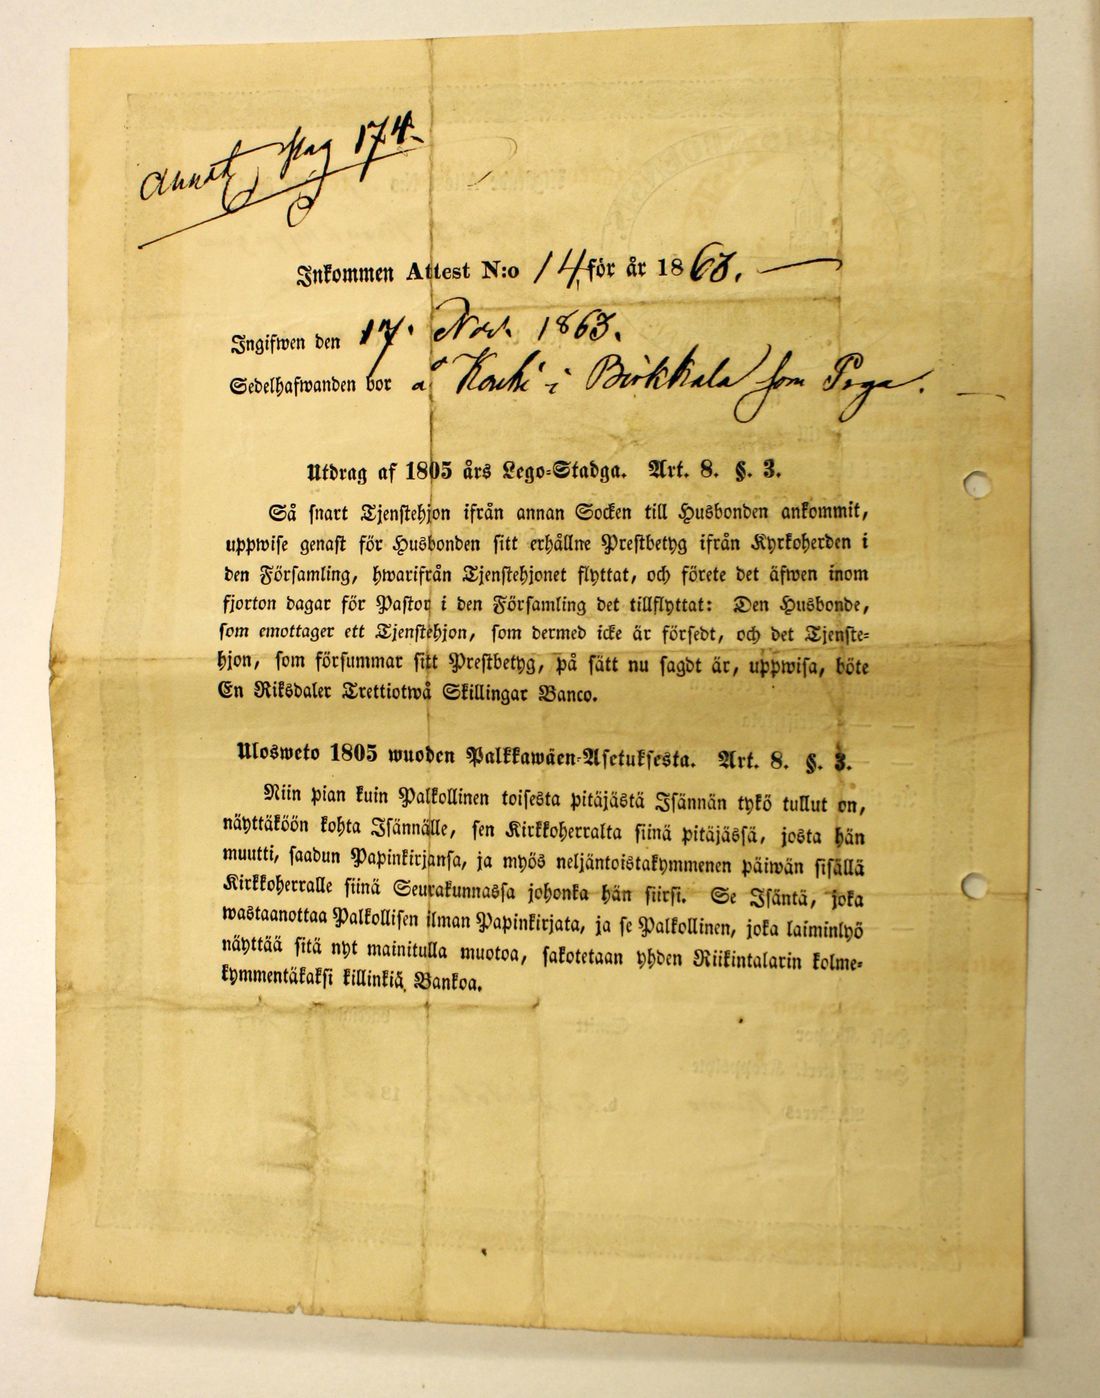 pag 174.
Inkommen Attest N:o 14 för år 1863.
Ingifwen den 17. Nov. 1863.
Sedelhafwanden bor å i Birkkala som Piga.
Utdrag af 1805 års Lego-Stadga. Art. 8. §. 3.
Så snart Tjenstehjon ifrån annan Socken till Husbonden ankommit,
uppwise genast för Husbonden sitt erhållne Prestbetyg ifrån Kyrkoherden i
den Församling, hwarifrån Tjenstehjonet flyttat, och förete det äfwen inom
fjorton dagar för Pastor i den Församling det tillflyttat: Den Husbonde,
som emottager ett Tjenstehjon, som dermed icke är försedt, och det Tjenste-
hjon, som försummar sitt Prestbetyg, på sätt nu sagdt är, uppwisa, böte
En Riksdaler Trettiotwå Skillingar Banco.
Ulosweto 1805 wuoden Palkkawäen-Asetuksesta. Art. 8. §. 3.
Niin pian kuin Palkollinen toisesta pitäjästä Isännän tykö tullut on,
näyttäköön kohta Isännälle, sen Kirkkoherralta siinä pitäjässä, josta hän
muutti, saadun Papinkirjansa, ja myös neljäntoistakymmenen päiwän sisällä
Kirkkoherralle siinä Seurakunnassa johonka hän siirsi. Se Isäntä, joka
wastaanottaa Palkollisen ilman Papinkirjata, ja se Palkollinen, joka laiminlyö
näyttää sitä nyt mainitulla muotoa, sakotetaan yhden Riikintalarin kolme-
kymmentäkaksi killinkiä Bankoa.